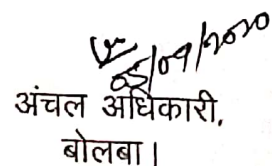 05/09/2020
अंचल अधिकारी,
बोलबा।